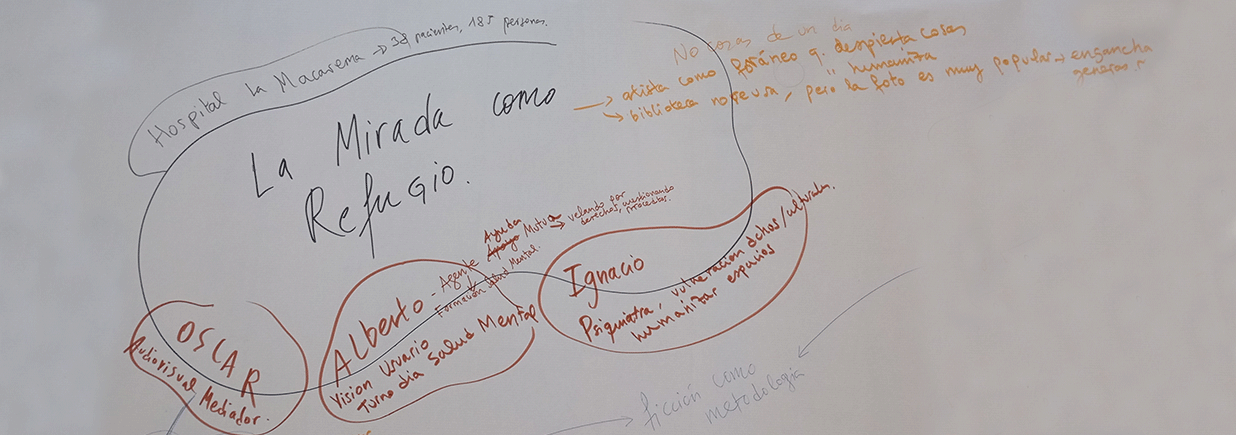 Hospital La Macarena → 38 pacientes, 185 personas.
La Mirada como
Refugio.
No cosas de un día
→ artista como foráneo q. despierta cosas
" humaniza
↳ biblioteca no se usa, pero la foto es muy popular → engancha
OSCAR
Audiovisual Mediador.
Alberto = Agente Apoyo Mutua → velando por
Ayuda
derechos, cuestionando
Formación Salud Mental.
Vision Usuario
Turno dia Salud Mental
Ignacio
Psiquiatra, vulneracion dchos/culturales.
humanizar espacios
→ ficción como
metodología